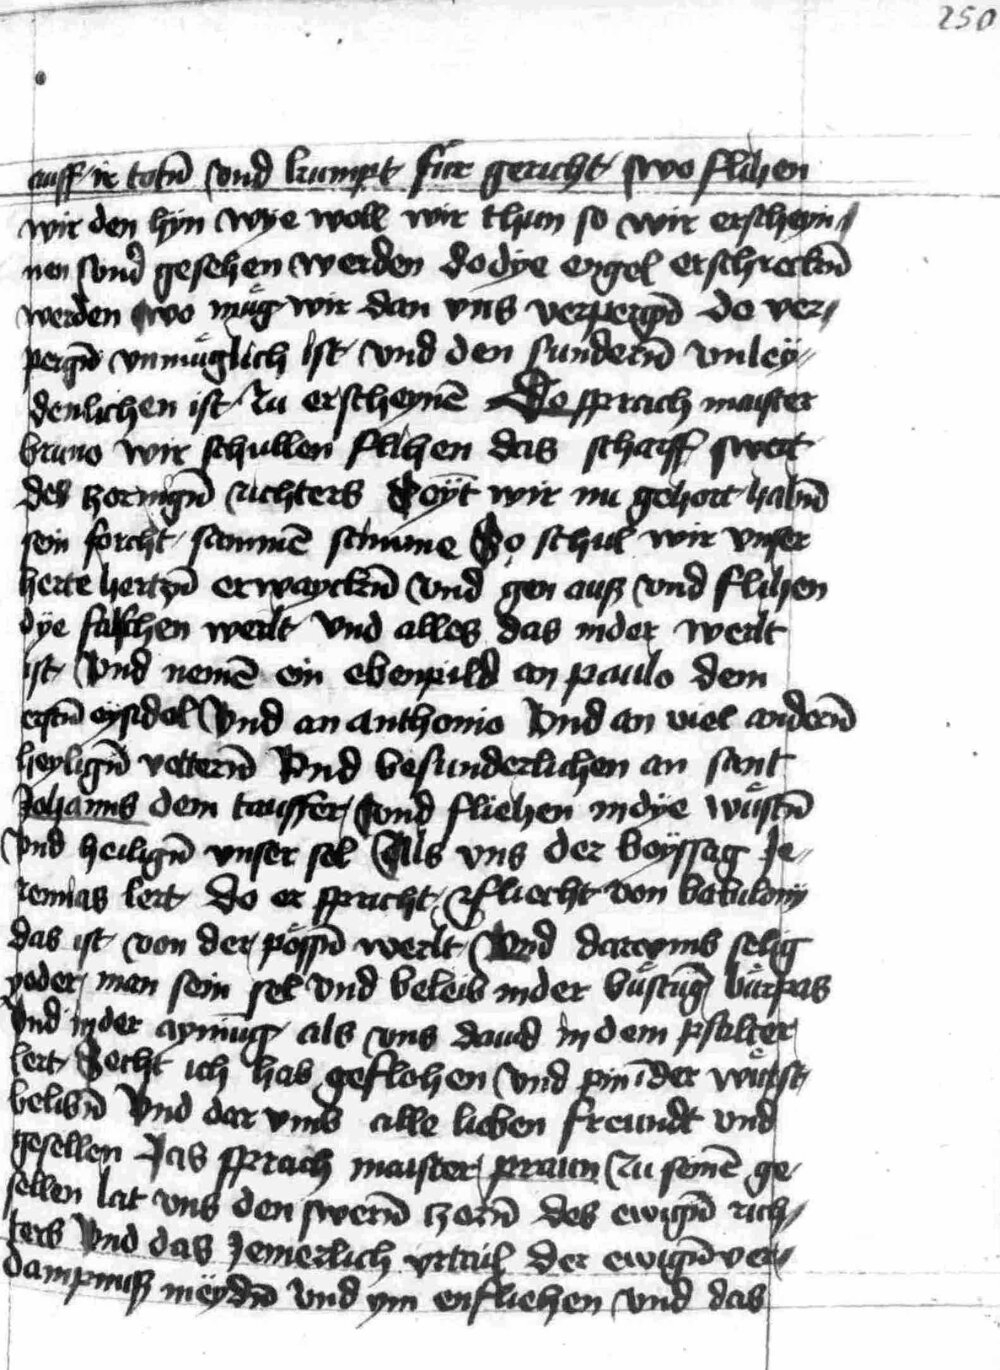 250
auff ir totn̄ vnd kumpt für gericht wo flihen
wir den hyn wye woll wir thun so wir erscheyn
nen vnd gesehen werden do dye engel erschreckn̄
werden wo müg wir dan vns verpergn̄ do ver
pergn̄ vnmüglich ist vnd den sundern̄ vnley
denlichen ist zu erscheynē Do sprach maister
bruno wir schullen flihen das scharff swert
des zornign̄ richters Seyt wir nu gehort habn̄
sein forcht sammē stimme So schul wir vnser
herte hertzn̄ erwayckn̄ vnd gen auß vnd flihen
dye falschen werlt vnd alles das in der werlt
ist Vnd nemē ein ebenpild an paulo dem
erstn̄ eysidel Vnd an anthonio Vnd an viel andern̄
heylign̄ vettern̄ Vnd besunderlichen an sant
Johanns dem tauffer vnd fliehen in dye wüstn̄
Vnd heilign̄ vnser sel Als vns der weyssag Je
remias lert do er spricht fliecht von babilony
das ist von der pössn̄ werlt Vnd darvmb selig
yeder man sein sel vnd beleib in der wüstūg
Vnd in der aynnug als vns dauid in dem psalter
lert Secht ich hab geflohen vnd pin ī der wüst
belibn̄ Vnd dar vmb alle lieben freundt vnd
gesellen Das sprach maister praun zu seinē ge
sellen lat vns den swern̄ tzorn̄ des ewign̄ rich
ters Vnd das Jemerlich vrtail der ewign̄ ver
dampnuß meydn̄ vnd ym enfliehen vnd das